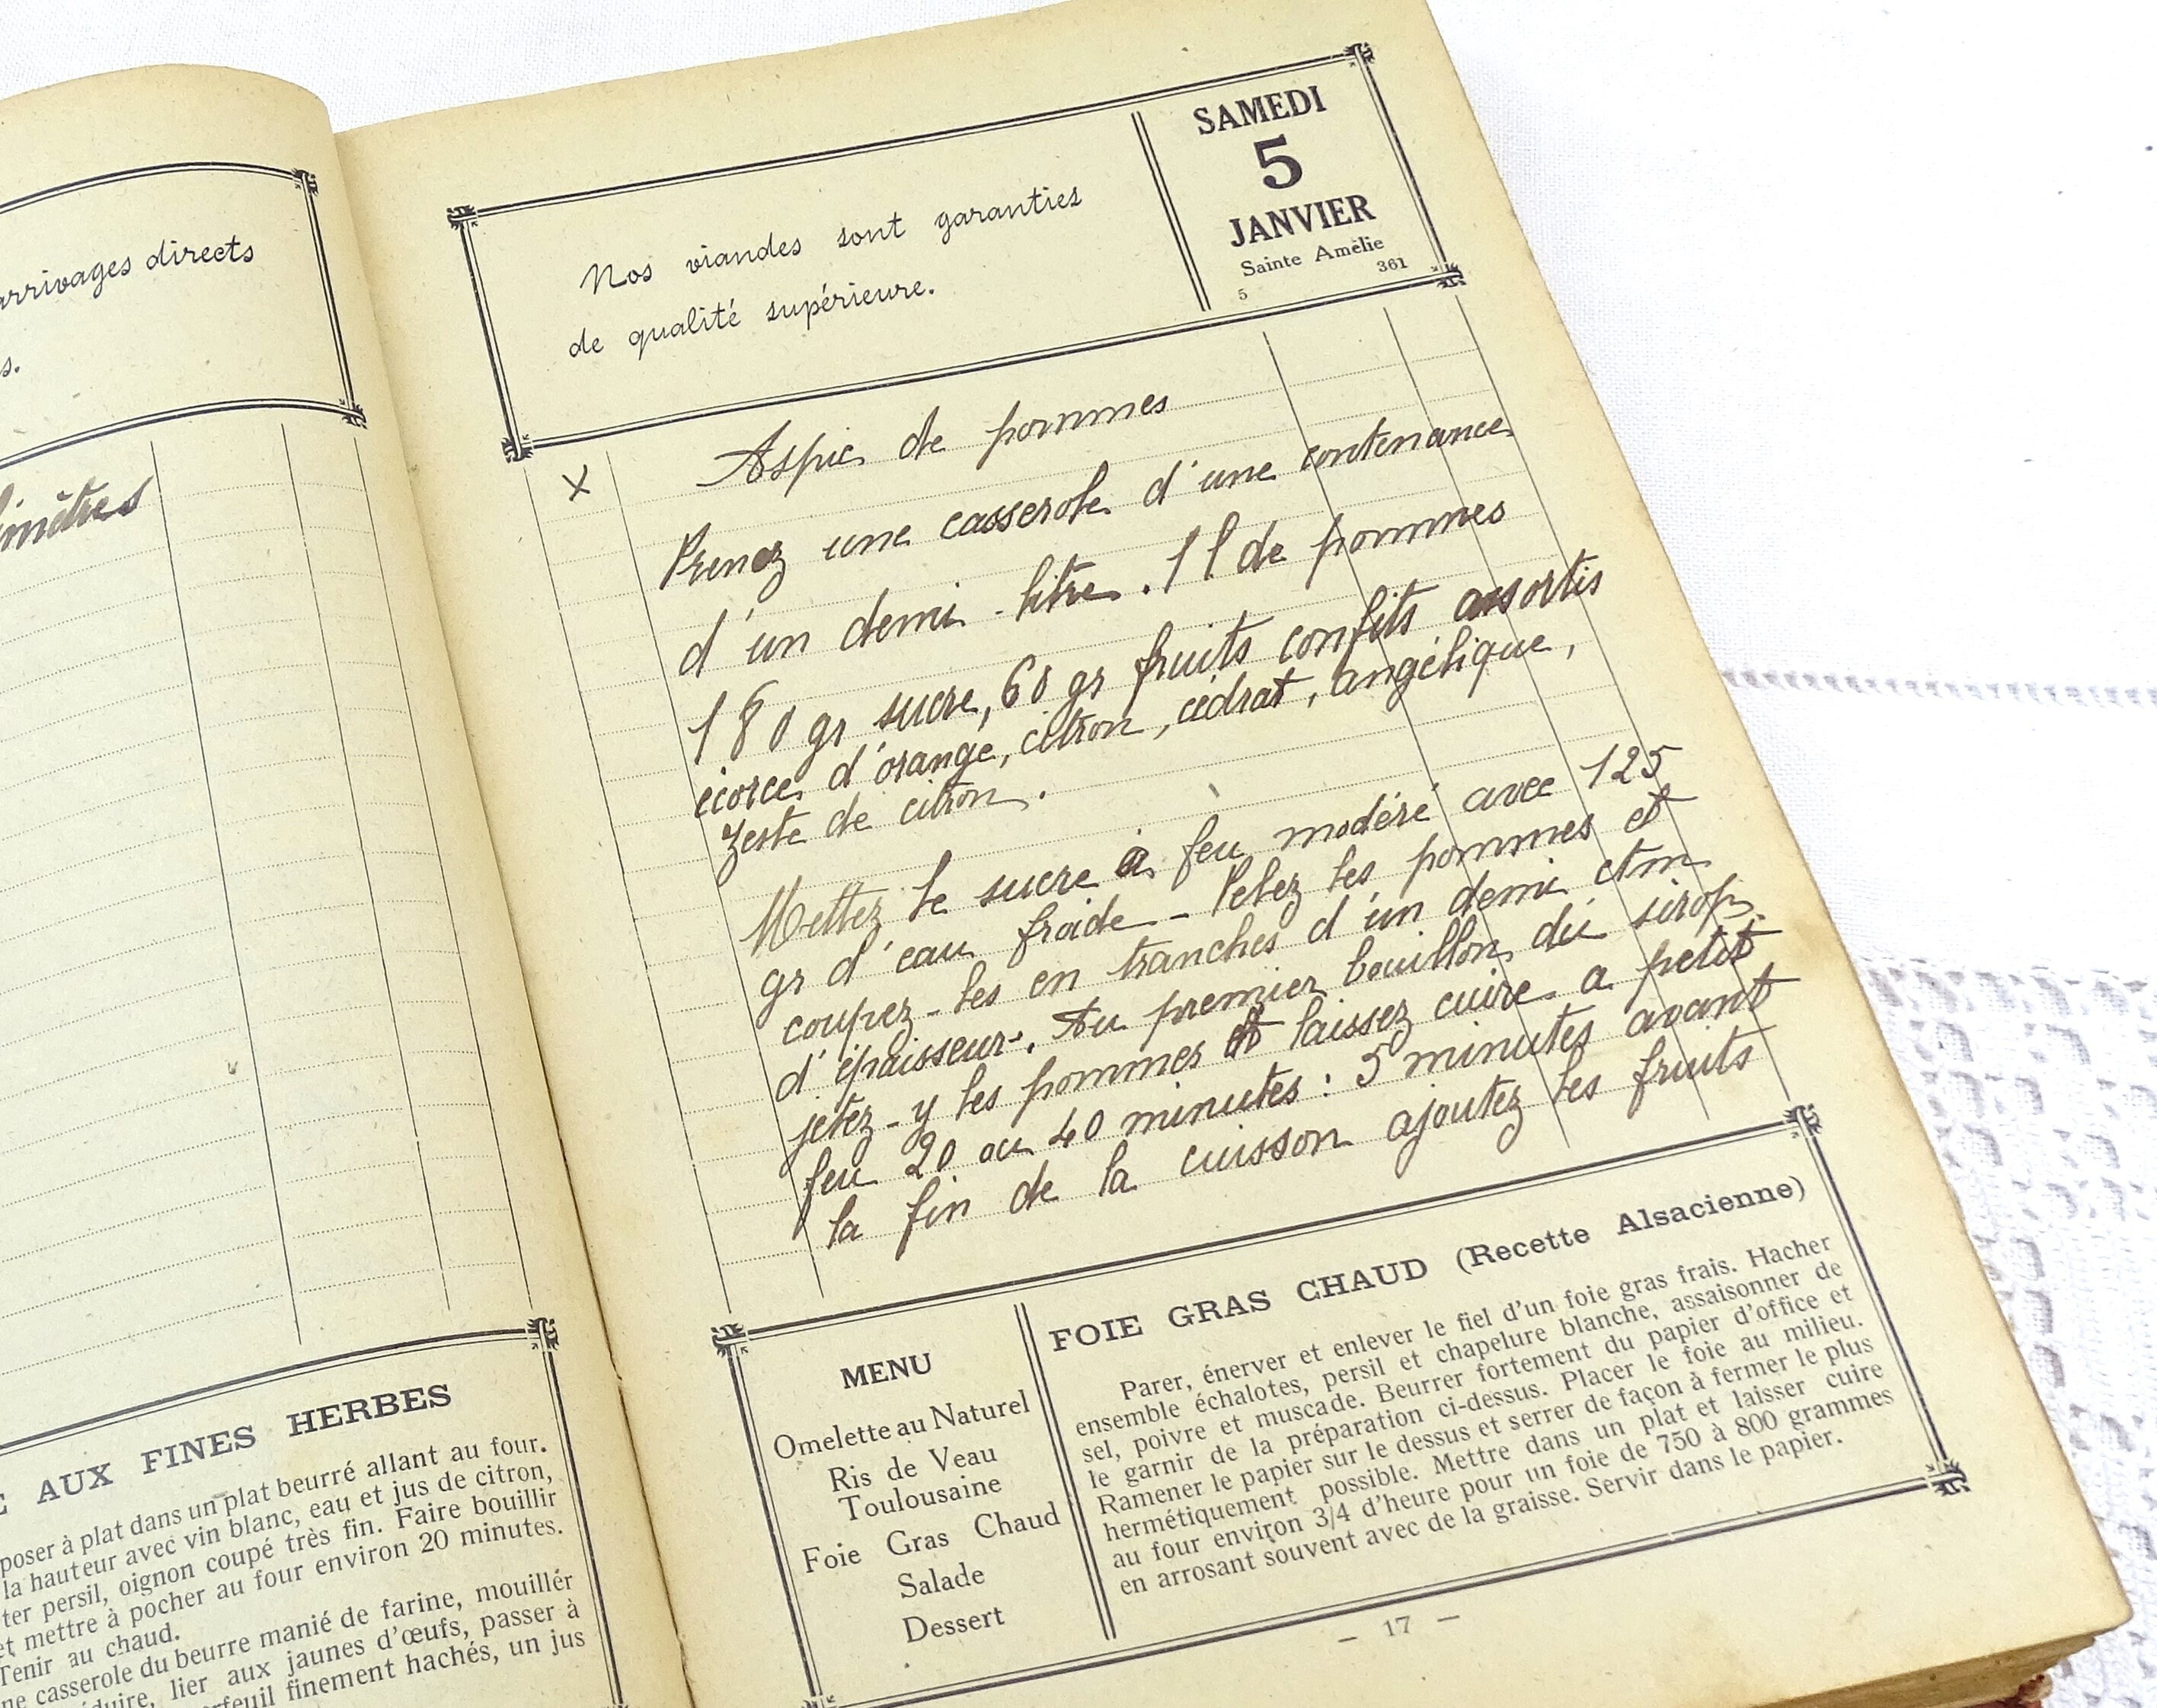 arrivages directs
s.
AUX FINES HERBES
poser à plat dans un plat beurré allant au four.
la hauteur avec vin blanc, eau et jus de citron,
ter persil, oignon coupé très fin. Faire bouillir
et mettre à pocher au four environ 20 minutes.
Tenir au chaud.
ne casserole du beurre manié de farine, mouillér
duire, lier aux jaunes d'œufs, passer à
rfeuil finement hachés, un jus
Nos viandes sont garanties
de qualité supérieure.
SAMEDI
5
JANVIER
Sainte Amélie
5 361
x Aspic de pommes
Prenez une casserole d'une contenance
d'un demi-litre. 1 l de pommes
180 gr sucre, 60 gr fruits confits assortis
écorce d'orange, citron, cédrat, angélique,
zeste de citron.
Mettez le sucre à feu modéré avec 125
gr d'eau froide - Pelez les pommes et
coupez-les en tranches d'un demi ctm
d'épaisseur. Au premier bouillon du sirop
jetez-y les pommes et laissez cuire a petit
feu 20 ou 40 minutes : 5 minutes avant
la fin de la cuisson ajoutez les fruits
MENU
Omelette au Naturel
Ris de Veau
Toulousaine
Foie Gras Chaud
Salade
Dessert
FOIE GRAS CHAUD (Recette Alsacienne)
Parer, énerver et enlever le fiel d'un foie gras frais. Hacher
ensemble échalotes, persil et chapelure blanche, assaisonner de
sel, poivre et muscade. Beurrer fortement du papier d'office et
le garnir de la préparation ci-dessus. Placer le foie au milieu.
Ramener le papier sur le dessus et serrer de façon à fermer le plus
hermétiquement possible. Mettre dans un plat et laisser cuire
au four environ 3/4 d'heure pour un foie de 750 à 800 grammes
en arrosant souvent avec de la graisse. Servir dans le papier.
— 17 —